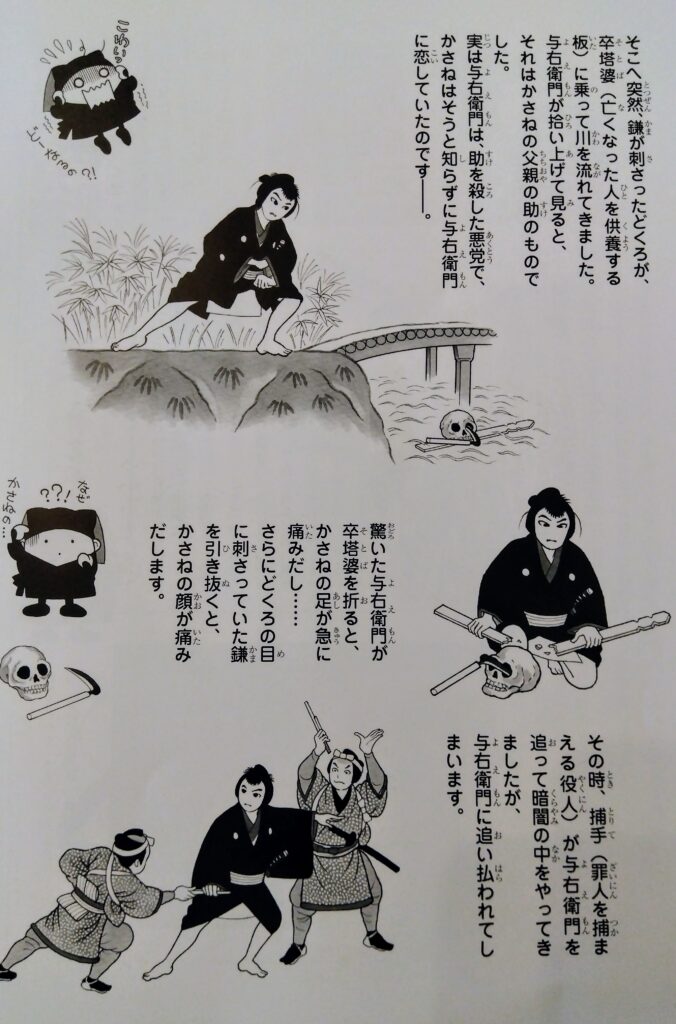 そこへ突然、鎌が刺さったどくろが、
卒塔婆（亡くなった人を供養する
板）に乗って川を流れてきました。
与右衛門が拾い上げて見ると、
それはかさねの父親の助のもので
した。
実は与右衛門は、助を殺した悪党で、
かさねはそうと知らずに与右衛門
に恋していたのです──。
こわいっ
驚いた与右衛門が
卒塔婆を折ると、
かさねの足が急に
痛みだし……
さらにどくろの目
に刺さっていた鎌
を引き抜くと、
かさねの顔が痛み
だします。
なぜ
??!
かさねの…
その時、捕手（罪人を捕ま
える役人）が与右衛門を
追って暗闇の中をやってき
ましたが、
与右衛門に追い払われてし
まいます。